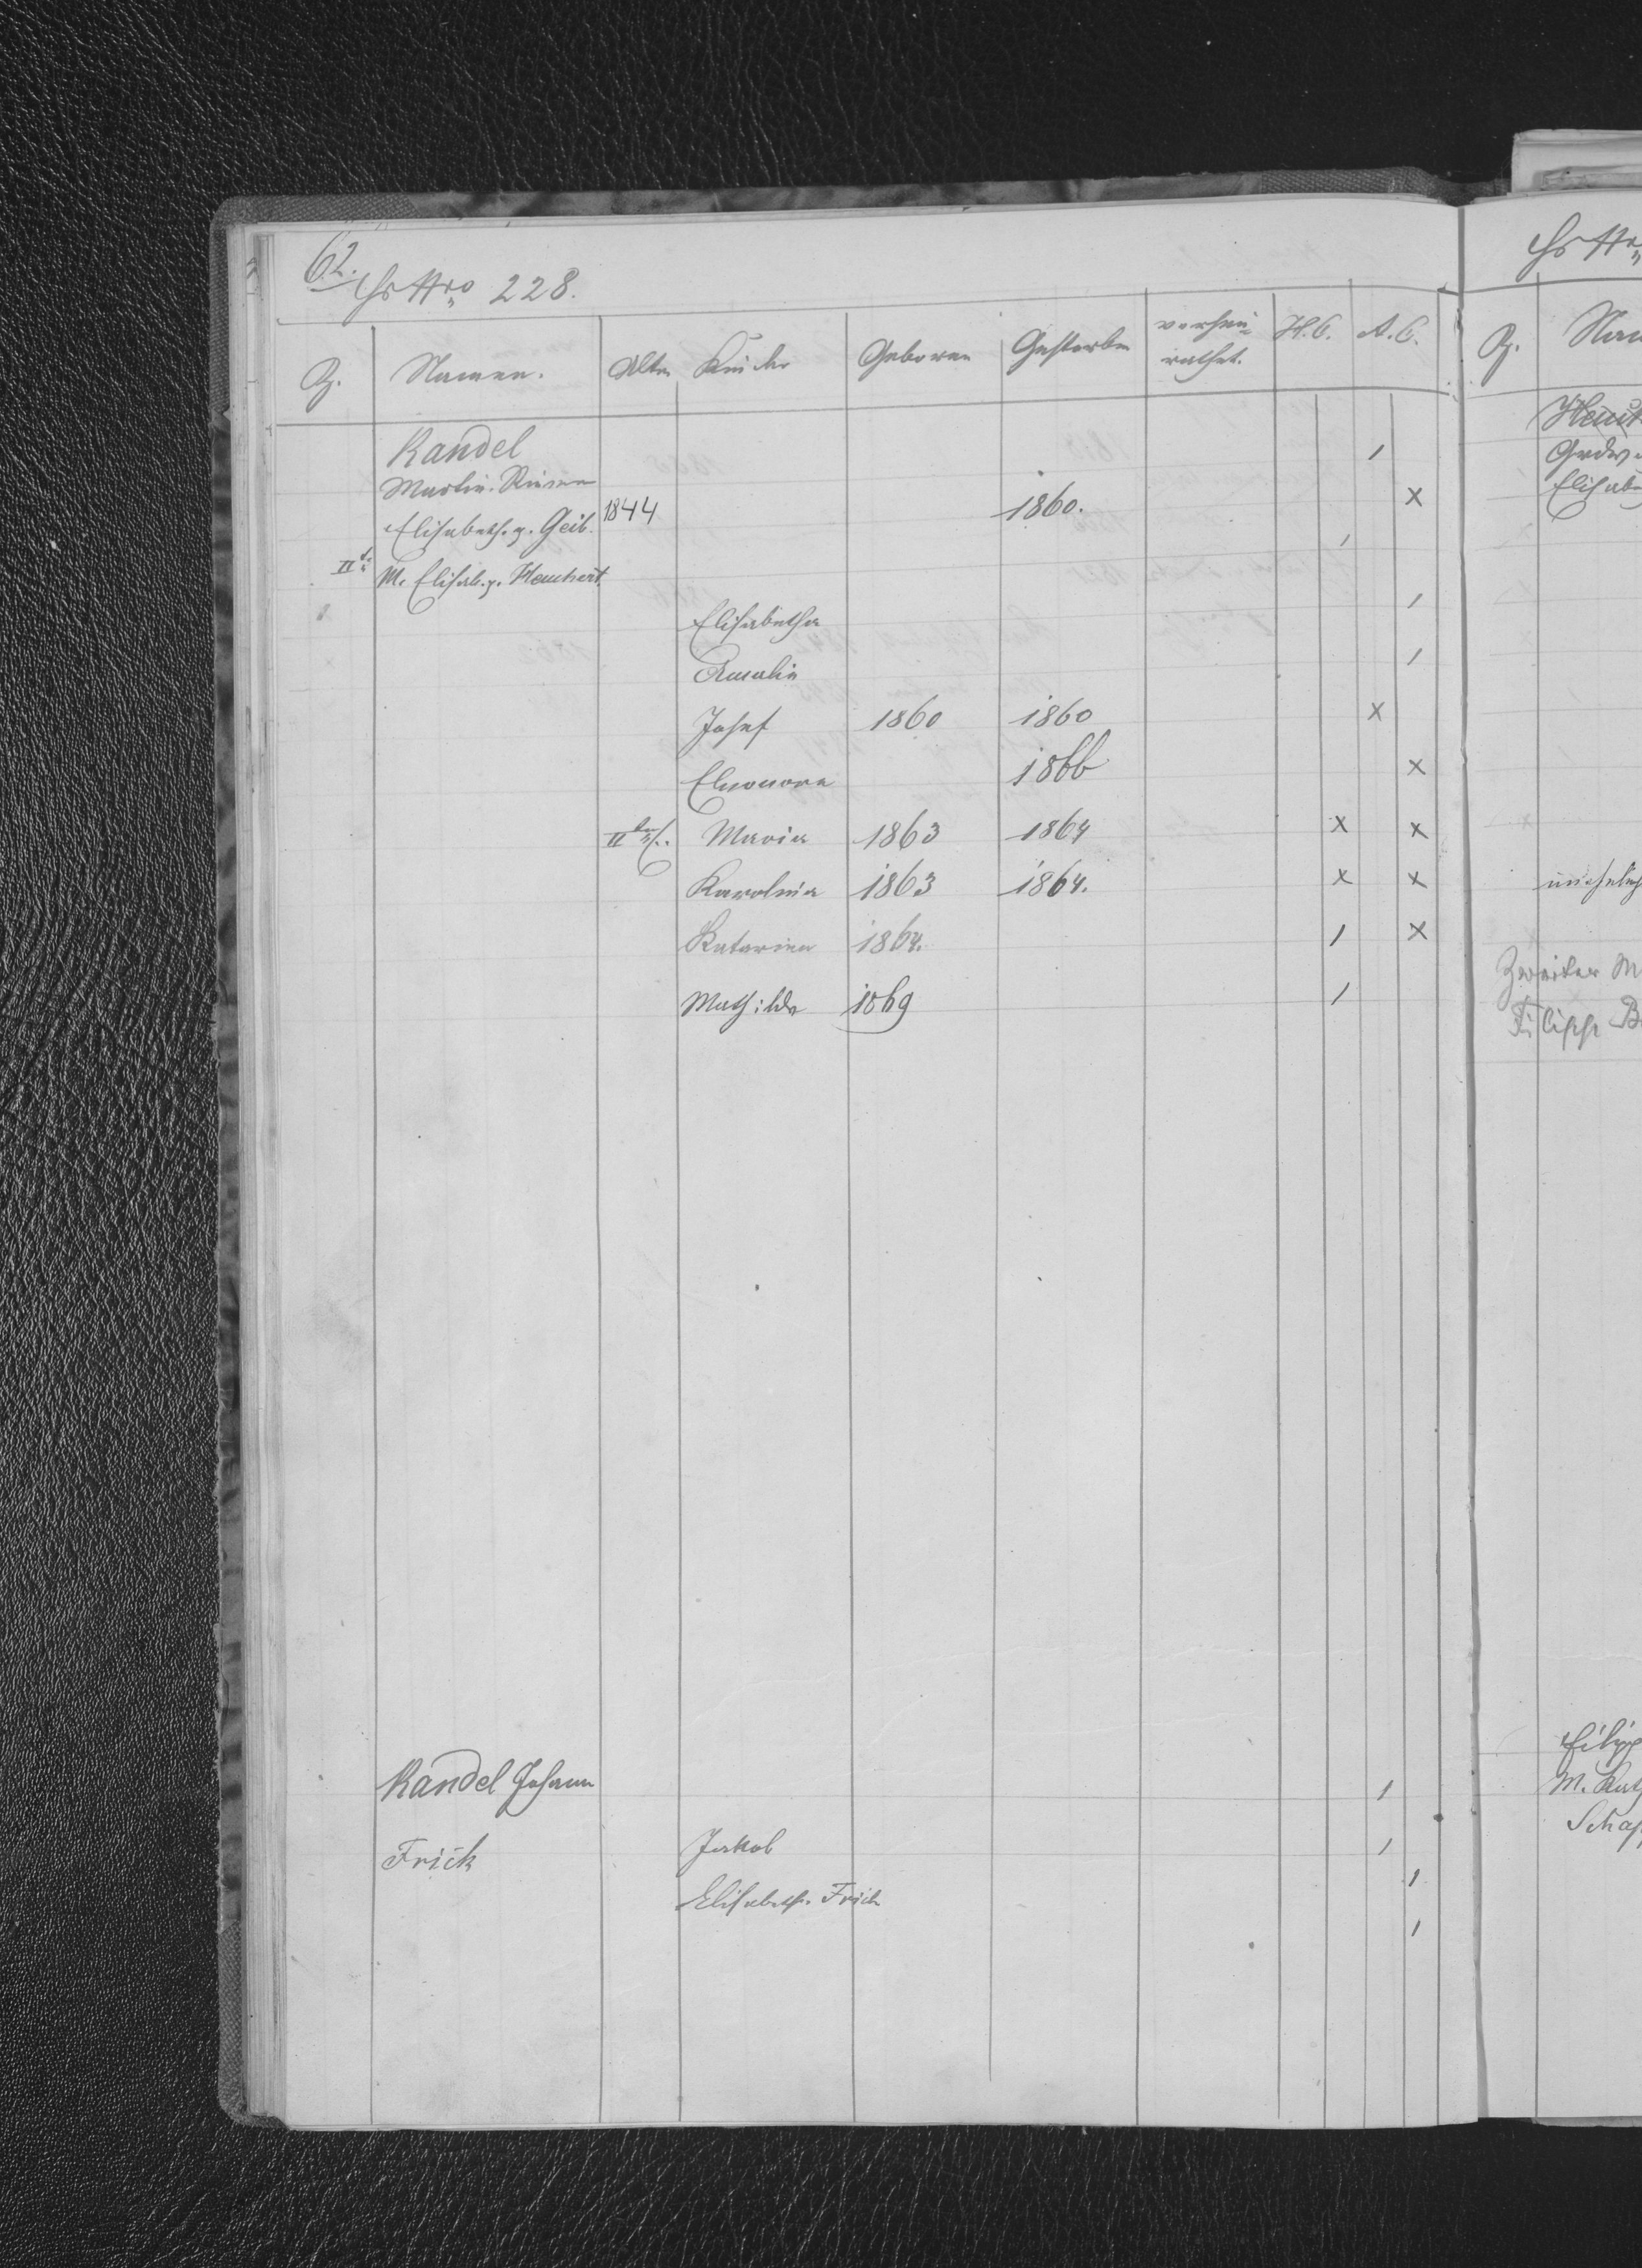 62.
Hs Nro 228.
Z. Namen. Alter Kinder Geboren Gestorben verhei=
rathet. H.C. A.C.
Kandel /
Martin Riemer
Elisabeth. g. Geib. 1844 1860. x
IIte M. Elisab. g. Heuchert. /
Elisabetha /
Amalia /
Josef 1860 1860 x
Eleonora 1866 x
IIter Maria 1863 1864 x x
Karolina 1863 1864. x x
Katarina 1864. / x
Mathilde 1869 /
Kandel Johann /
Frick Jakob /
Elisabeth. Frick /
/
Hs Nro
Z. Nam
Elisab
unehelich
Zweiter M
Filipp B
Filipp
M. Kath
Schap